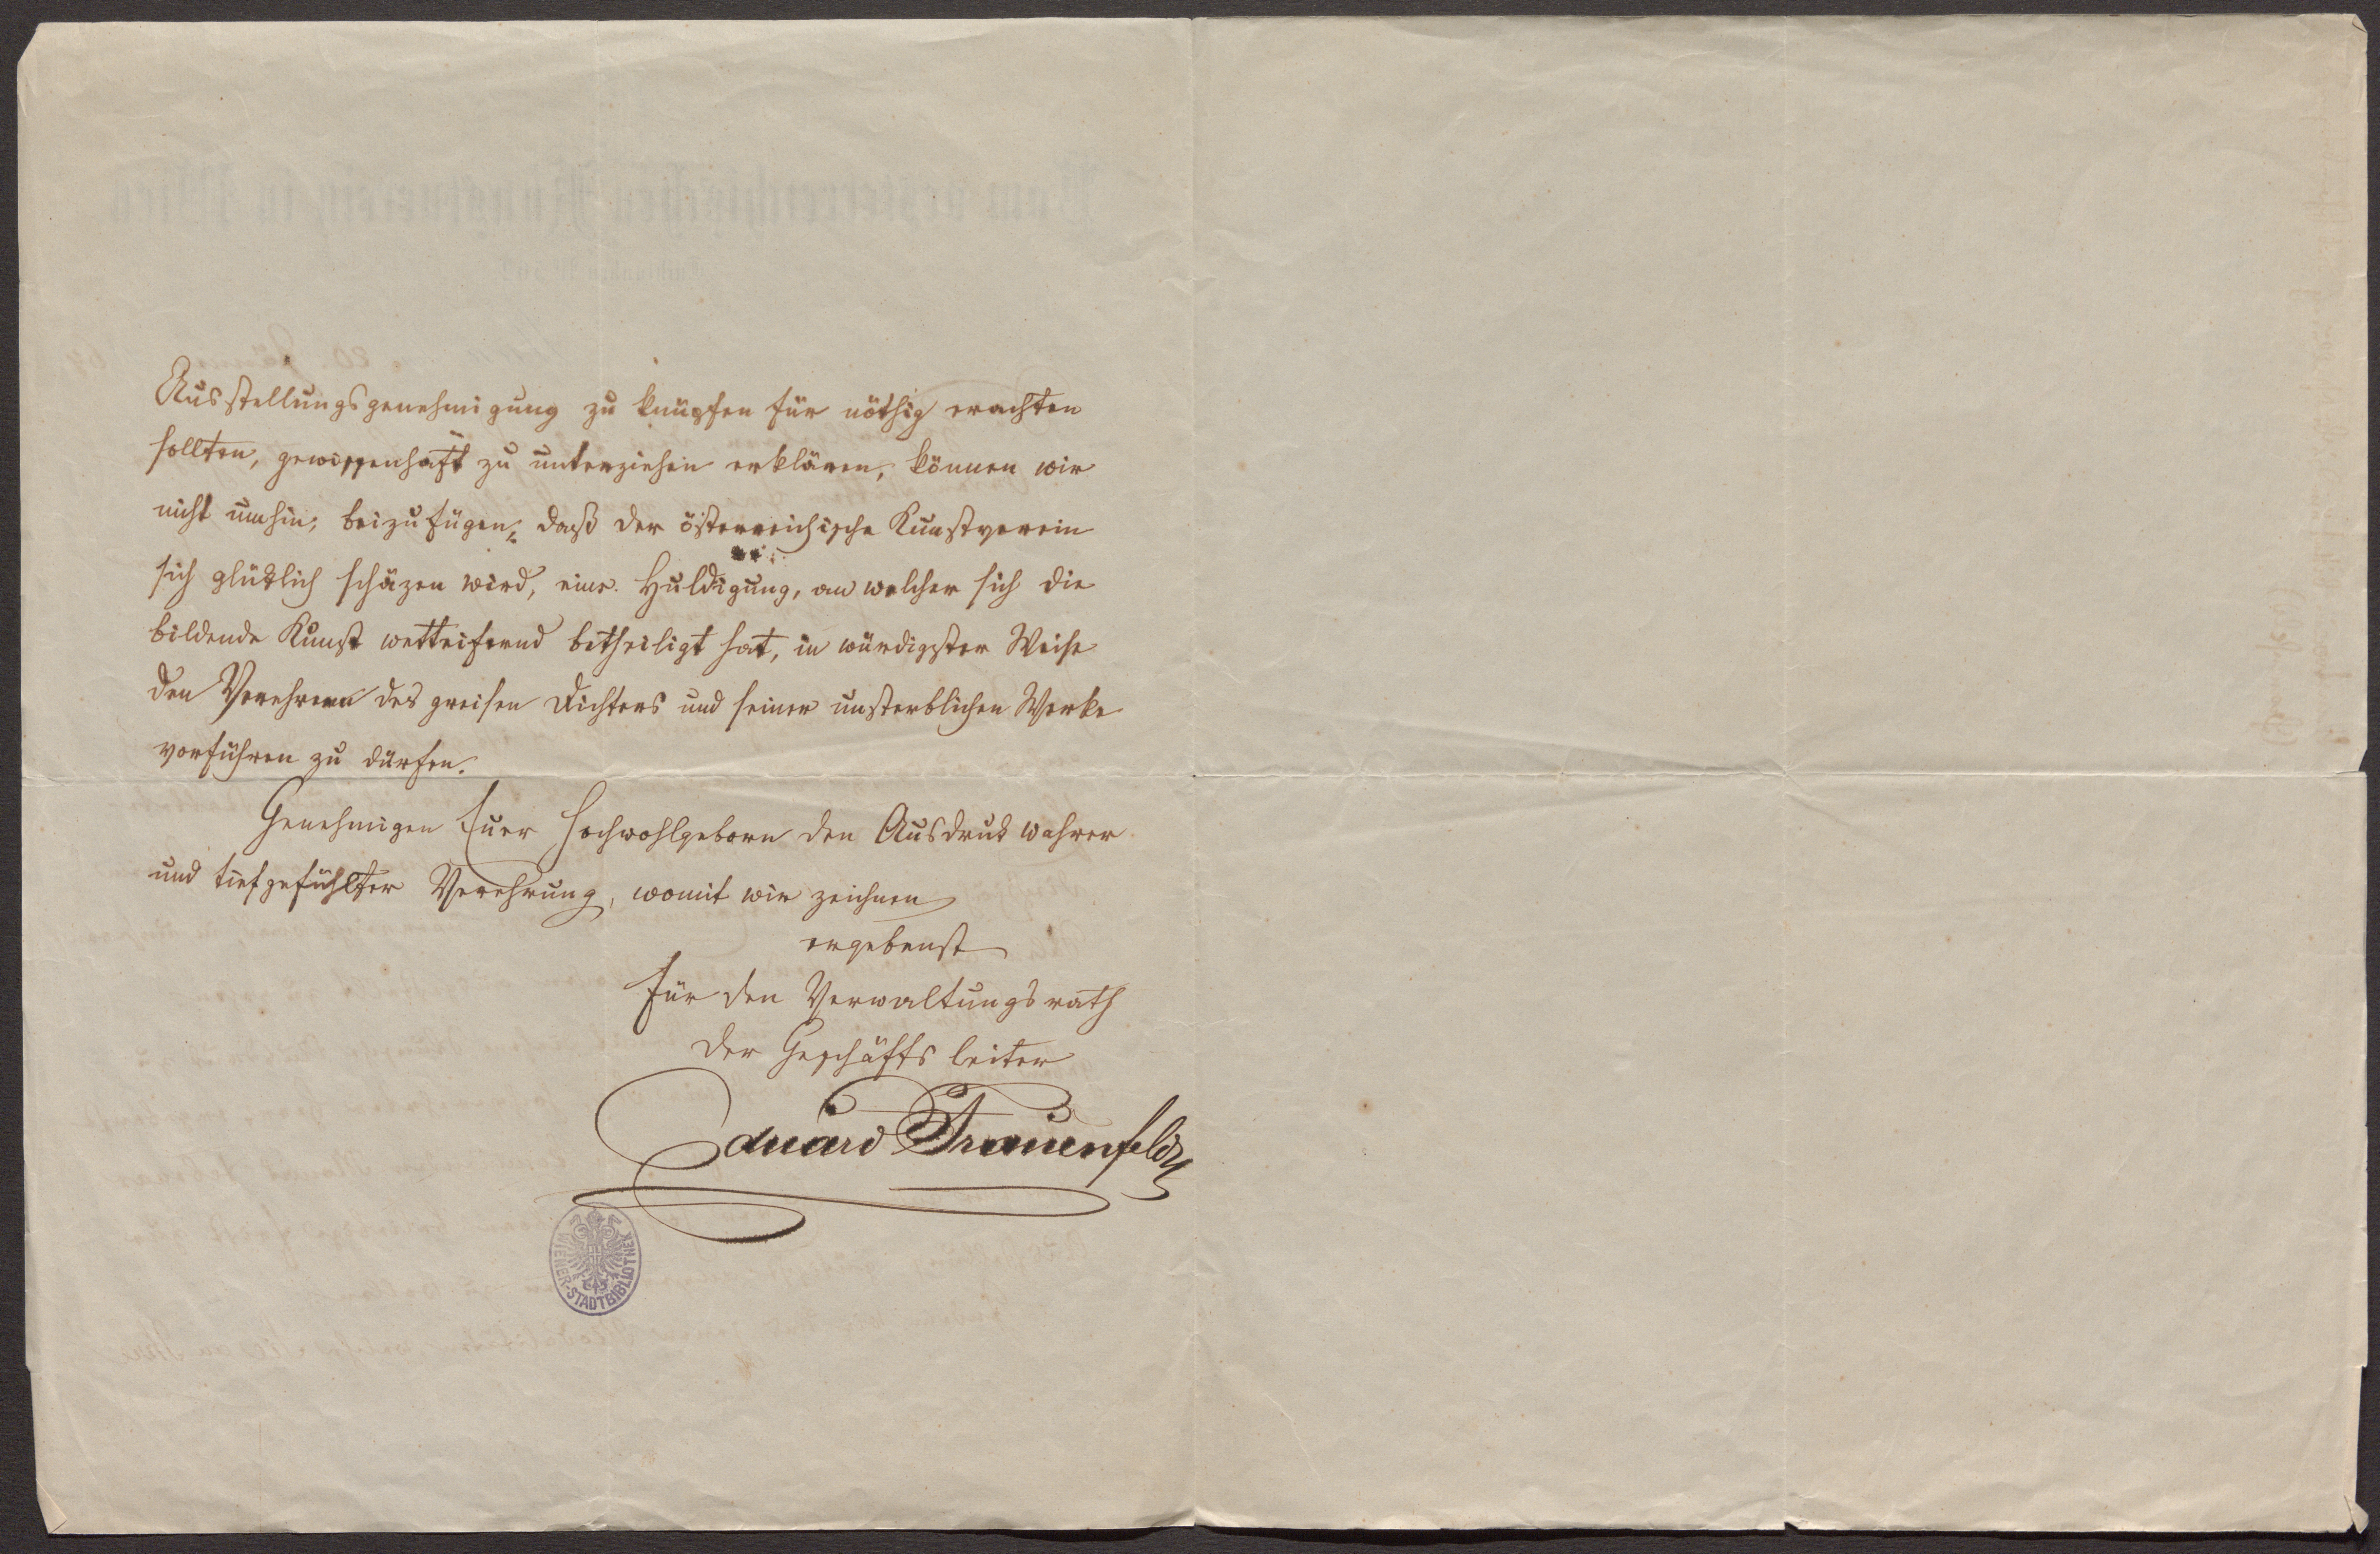 Ausstellungsgenehmigung zu knüpfen für nöthig erachten
sollten, gewissenhaft zu unterziehen erklären, können wir
nicht umhin, beizufügen, daß der österreichische Kunstverein
sich glüklich schäzen wird, eine Huldigung, an welcher sich die
bildende Kunst wetteifernd betheiligt hat, in würdigster Weise
den Verehrern des greisen Dichters und seiner unsterblichen Werke
vorführen zu dürfen.
Genehmigen Euer Hochwohlgeborn den Ausdruk wahrer
und tiefgefühlter Verehrung, womit wir zeichnen
ergebenst
Für den Verwaltungsrath
der Geschäftsleiter
Eduard Frauenfeld
WIENER-STADTBIBLIOTHEK